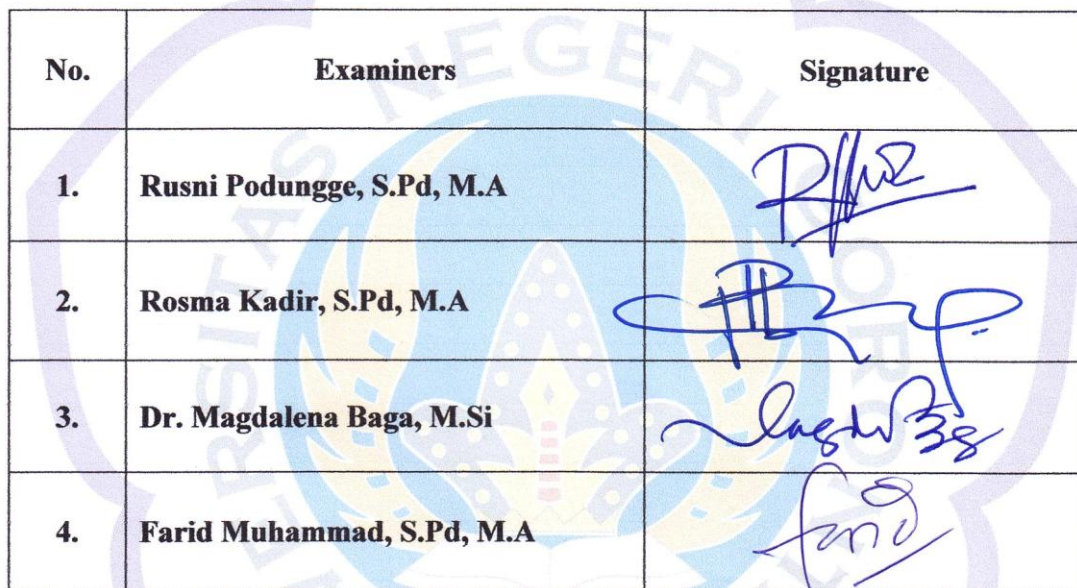 No. Examiners Signature
1. Rusni Podungge, S.Pd, M.A
2. Rosma Kadir, S.Pd, M.A
3. Dr. Magdalena Baga, M.Si
4. Farid Muhammad, S.Pd, M.A
Farid
NEGERI